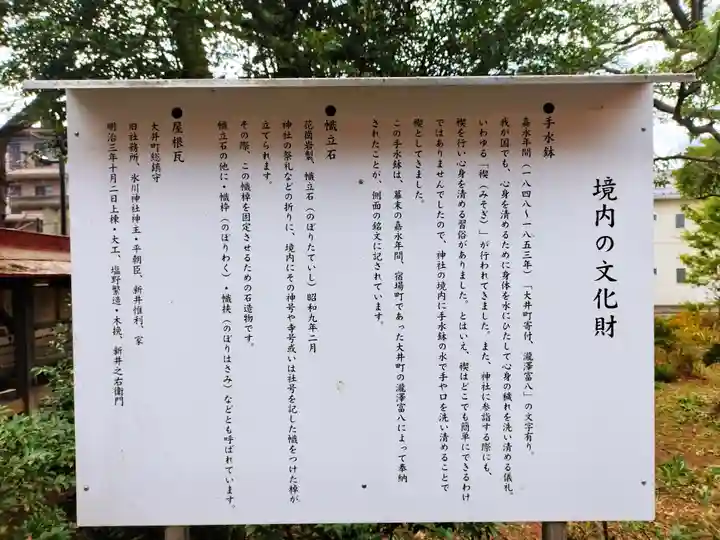 境内の文化財
●手水鉢
嘉永年間(一八四八~一八五三年)「大井町寄付、瀧澤富八」の文字有り。
我が国でも、心身を清めるために身体を水にひたして心身の穢れを洗い清める儀礼。
いわゆる「禊(みそぎ)」が行われてきました。また、神社に参詣する際にも、
禊を行い心身を清める習俗がありました。とはいえ、禊はどこでも簡単にできるわけ
ではありませんでしたので、神社の境内に手水鉢の水で手や口を洗い清めることで
禊としてきました。
この手水鉢は、幕末の嘉永年間、宿場町であった大井町の瀧澤富八によって奉納
されたことが、側面の銘文に記されています。
●幟立石
花崗岩製、幟立石(のぼりたていし)昭和九年二月
神社の祭礼などの折りに、境内にその神号や寺号或いは社号を記した幟をつけた棹が
立てられます。
その際、この幟棹を固定させるための石造物です。
幟立石の他に・幟枠(のぼりわく)・幟挟(のぼりはさみ)などとも呼ばれています。
●屋根瓦
大井町総鎮守
旧社務所、氷川神社神主・平朝臣、新井惟利、家
明治三年十月二日上棟・大工、塩野繁造・木挽、新井之右衛門